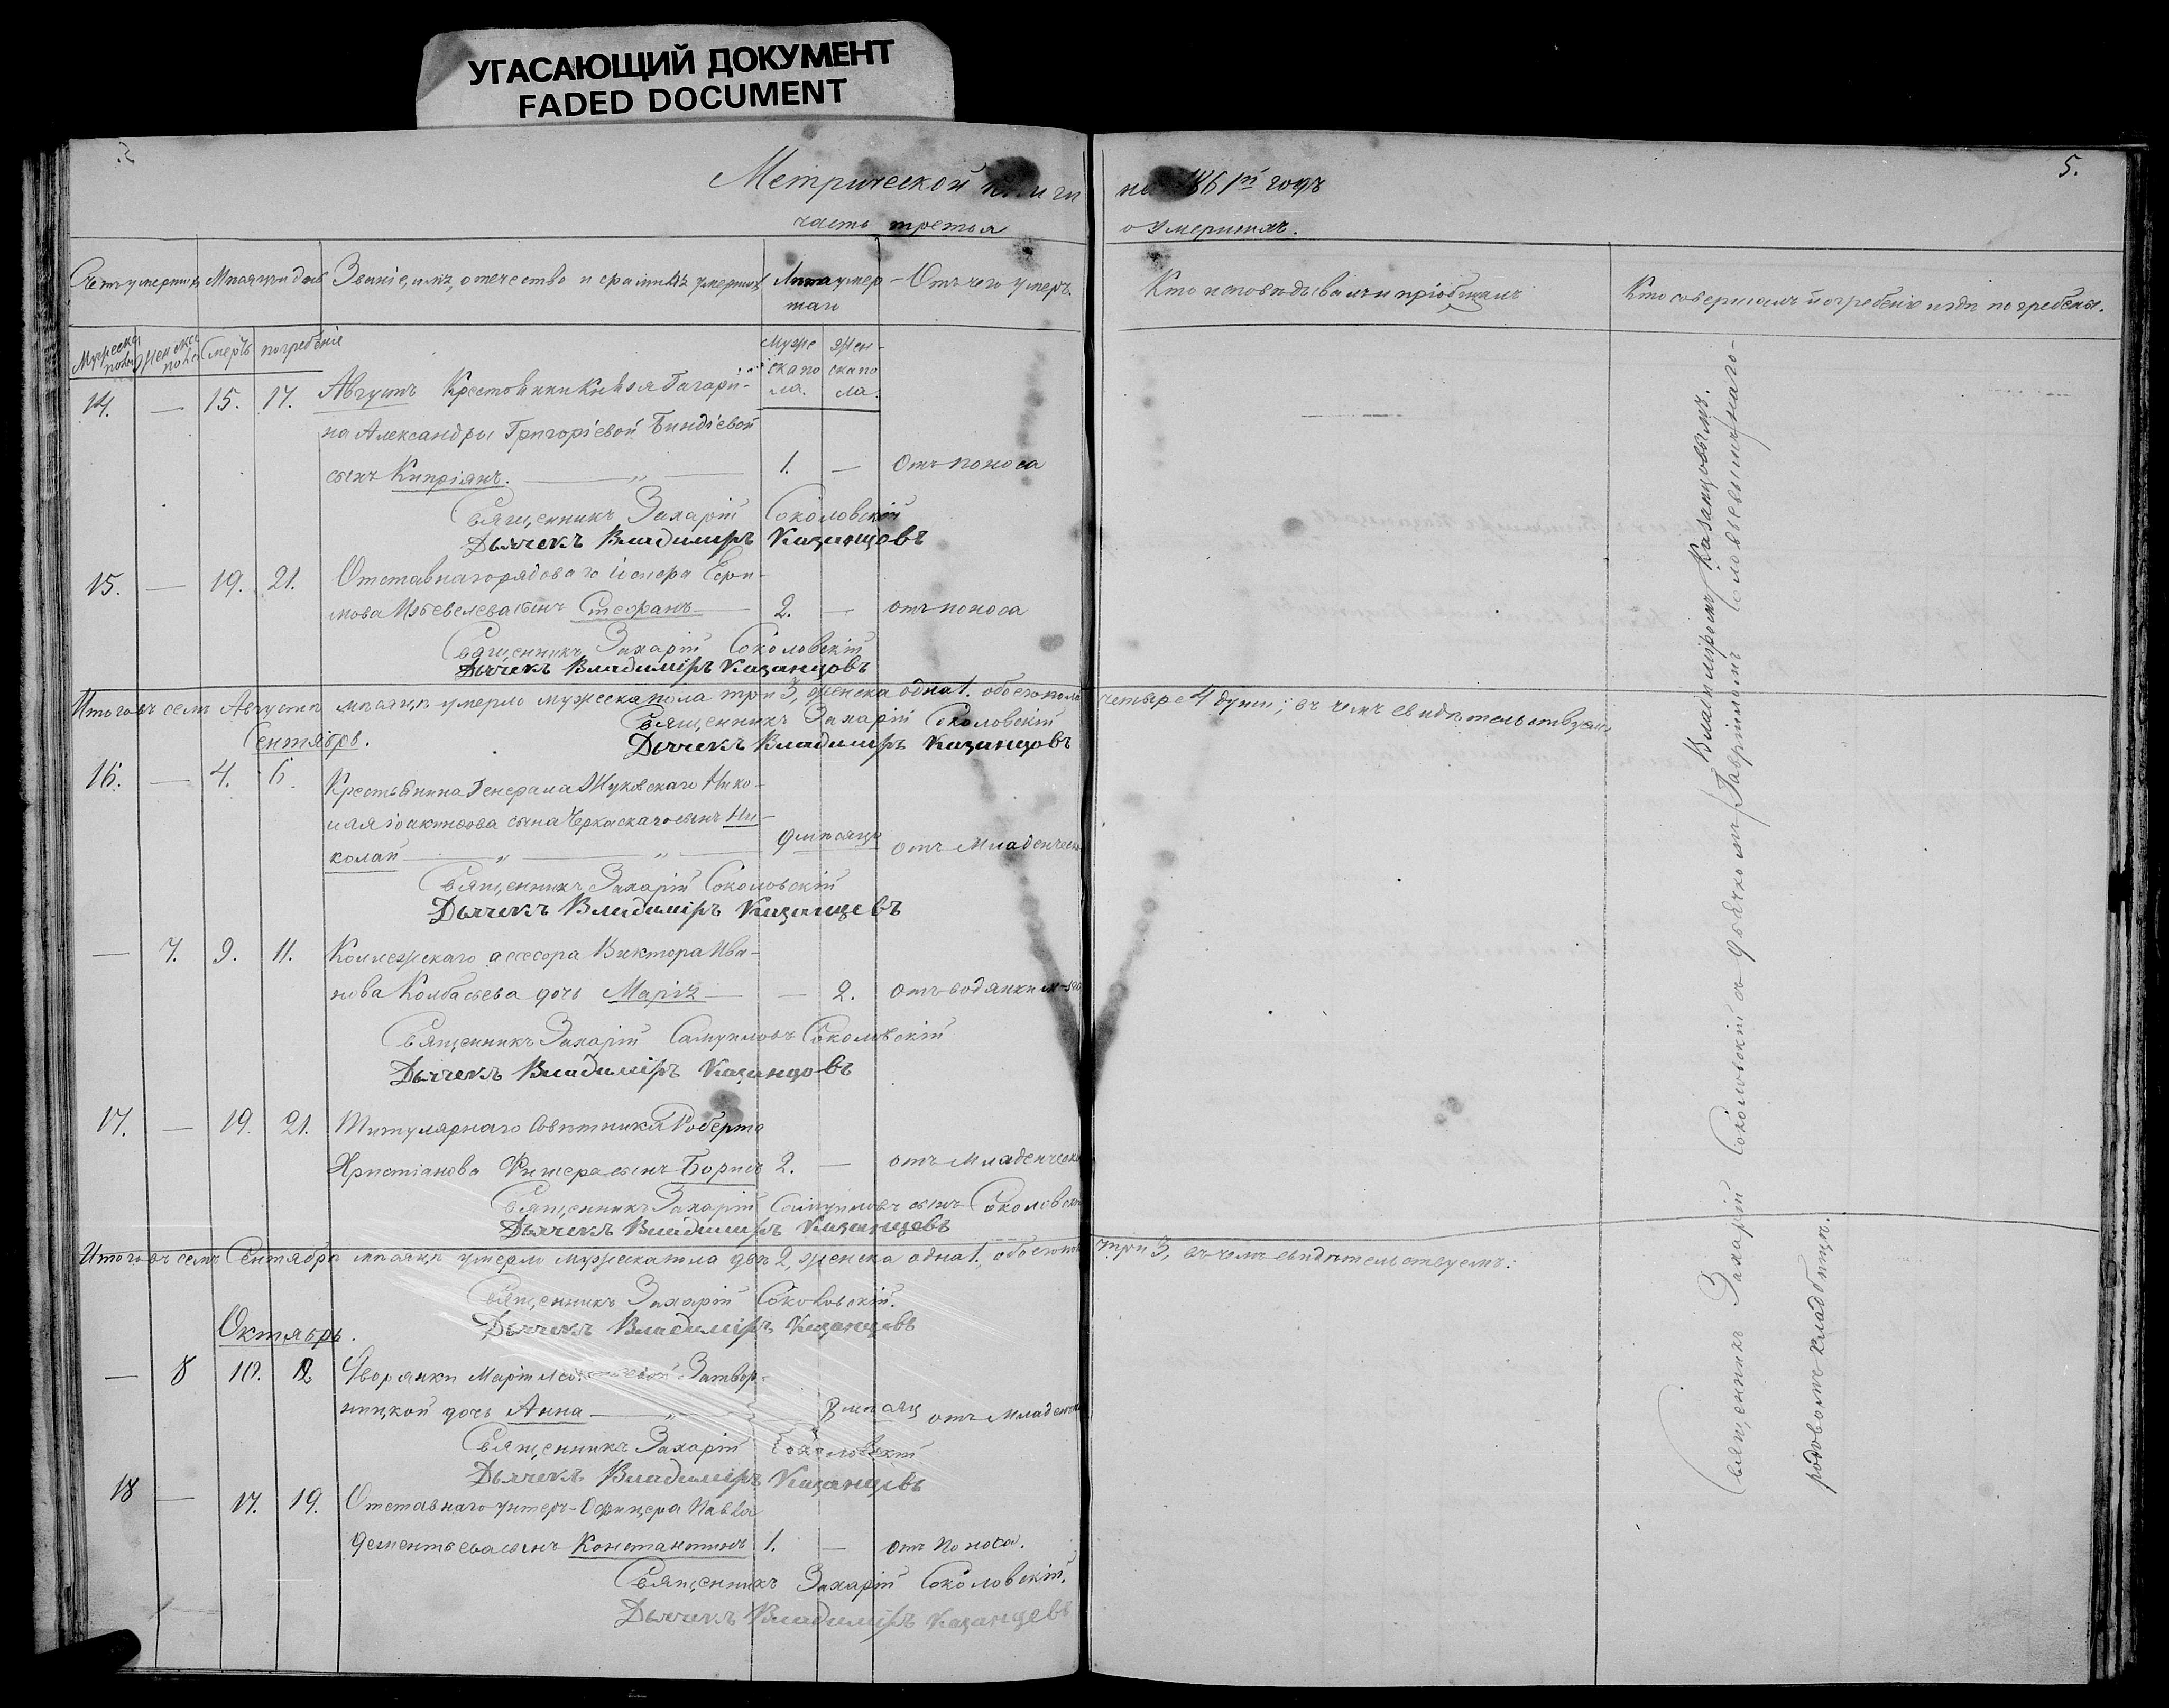 УГАСАЮЩИЙ ДОКУМЕНТ
FADED DOCUMENT
5.
Метрической книги на 1861й годъ
часть третья о умершихъ.
Счетъ умершихъ Мѣсяцъ и день Званіе, имя, отечество и фамилія умершихъ Лѣта умер- Отъ чего умеръ. Кто исповѣдывалъ и пріобщалъ Кто совершалъ погребеніе и гдѣ погребены.
шаго
Мужеска пола Женска пола Смерть погребеніе Муже- ска по- ла. Жен- ска по- ла.
14. — 15. 17. Августъ Крестьянки Князя Гагари-
на Александры Григоріевой Биндіевой
сынъ Кипріянъ. — „ — 1. — Отъ поноса
Священникъ Захарій Соколовскій
Дьячекъ Владимиръ Казанцовъ
15. — 19. 21. Отставнаго рядоваго
сынъ Стефанъ — 2. — отъ поноса
Священникъ Захарій Соколовскій
Дьячекъ Владиміръ Казанцовъ
Итого въ семъ Августѣ мѣсяцѣ умерло мужеска пола три 3, женска одна 1. обоего пола четыре 4 души; въ чемъ свидѣтельствуемъ
Священникъ Захарій Соколовскій
Сентябрь. Дьячекъ Владимиръ Казанцовъ
16. — 4. 6. Крестьянина Генерала Жуковскаго Нико-
лая Іоакимова сына Черкаскаго сынъ Ни-
колай — „ — „ — 9 мѣсяцъ отъ Младенческ.
Священникъ Захарій Соколовскій
Дьячекъ Владиміръ Казанцевъ
— 7. 9. 11. Коллежскаго ассесора Виктора Ива-
нова Колбасьева дочь Марія — — 2. отъ водянки
Священникъ Захарій Самуиловъ Соколовскій
Дьячекъ Владиміръ Казанцовъ
17. — 19. 21. Титулярнаго Совѣтника Роберта
Христіанова Фишера сынъ Борисъ 2. — отъ Младенческ
Священникъ Захарій Самуиловъ сынъ Соколовскі
Дьячекъ Владимиръ Казанцевъ
Итого въ семъ Сентябрѣ мѣсяцѣ умерло мужеска пола двѣ 2, женска одна 1, обоего три 3, въ чемъ свидѣтельствуемъ:
Священникъ Захарій Соколовскій.
Дьячекъ Владиміръ Казанцевъ
Октябрь.
— 8 10. 12 Дворянки Маріи Затвор-
ницкой дочь Анна — „ — 8 мѣсяц отъ Младенч
Священникъ Захарій Соколовскій
Дьячекъ Владиміръ Казанцевъ
18 — 17. 19. Отставнаго унтеръ-Офицера Павла
Дементьева сынъ Константинъ 1. — отъ поноса.
Священникъ Захарій Соколовскій.
Дьячекъ Владиміръ Казанцевъ
Священникъ Захарій Соколовскій съ дьячкомъ Владиміромъ Казанцовымъ.
Гавріиломъ Соловьевымъ
родовомъ кладбищѣ.